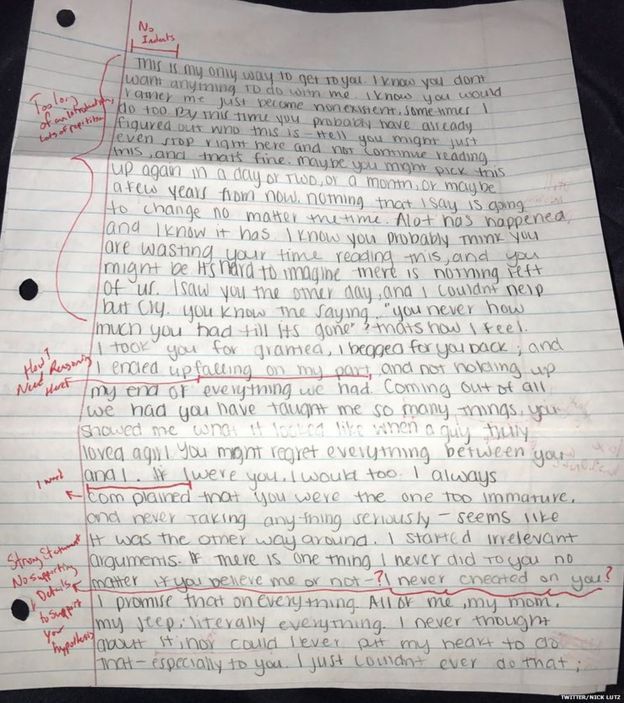 No
Indents
Too long
of an introduction,
lots of repetition
THis is my only way to get to you. I know you dont
want anything TO do with me. I know you would
rather me just become nonexistent, sometimes I
do too. By this time you probably have already
figured out who this is - Hell you might just
even stop right here and not continue reading
this, and thats fine. maybe you might pick this
up again in a day or two, or a month, or maybe
a few years from now. nothing that I say is going
to change no matter the time. Alot has happened,
and I know it has I know you probably think you
are wasting your time reading this, and you
might be its hard to imagine there is nothing left
of us. I saw you the other day, and I couldnt help
but cry. you know the saying, "you never how
much you had till its gone"? thats how I feel.
I took you for granted, I begged for you back; and
How?
Need Reasoning
Here!
I ended up falling on my part, and not holding up
my end of everything we had. Coming out of all
we had you have taught me so many things, you
showed me what it looked like when a guy truly
loved a girl. You might regret everything between you
and I. If I were you, I would too. I always
complained that you were the one too immature,
and never taking anything seriously - seems like
it was the other way around. I started irrelevant
arguments. If there is one thing I never did to you no
Strong Statement
No supporting
Details
to support
your
hypothesis
matter if you believe me or not-? I never cheated on you?
I promise that on everything. All of me, my mom,
my step; literally everything. I never thought
about it; nor could I ever put my heart to do
that - especially to you. I just couldnt ever do that;
TWITTER/NICK LUTZ